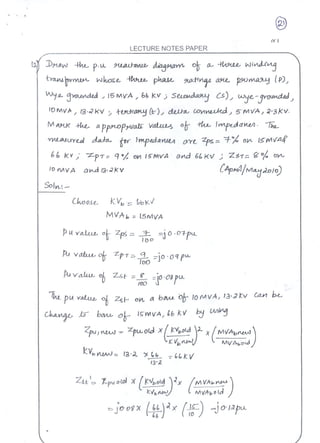 21
LECTURE NOTES PAPER
12) Draw the p.u reactance diagram of a three winding
transformer whose three phase ratings are primary (P),
wye grounded, 15 MVA, 66 KV ; Secondary (S), wye-grounded,
10 MVA, 13.2 KV ; tertiary (t), delta connected, 5 MVA, 2.3 KV.
Mark the appropriate values of the Impedances. The
measured data for Impedances are Zps = 7% on 15 MVA &
66 KV ; ZPT = 9% on 15 MVA and 66 KV ; ZST = 8% on
10 MVA and 13.2 KV (April/May 2010)
Soln:-
Choose KVb = 66KV
MVAb = 15MVA
p.u value of Zps = 7/100 = j0.07 pu
Pu value of ZPT = 9/100 = j0.09 pu
Pu value of Zst = 8/100 = j0.08 pu.
The pu value of Zst on a base of 10 MVA, 13.2 KV can be
change to base of 15 MVA, 66 KV by using
Zpu,new = Zpu,old × (KVb old / KVb new)2 × (MVAb new / MVAb old)
KVb new = 13.2 × 66/13.2 = 66 KV
Zst' = Zpu old × (KVb old / KVb new)2 × (MVAb new / MVAb old)
= j0.08 × (66/66)2 × (15/10) = j0.12 pu